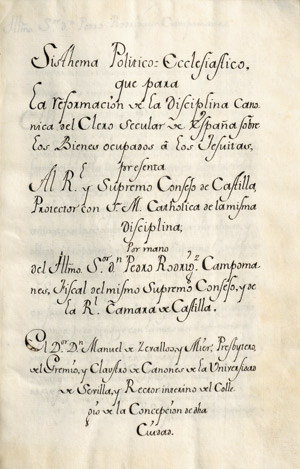 Sisthema Politico-Ecclesiastico,
que para
La reformacion de la Disciplina Cano-
nica del Clero Secular de España sobre
Los Bienes ocupados à los Jesuitas,
presenta
Al R.l y Supremo Consejo de Castilla,
Protector con S. M. Catholica de la misma
Disciplina,
Por mano
del Illmo. S.or d.n Pedro Rodrig.z Campoma-
nes, Fiscal del mismo Supremo Consejo, y de
la R.l Camara de Castilla.
El D.or D.n Manuel de Zevallos, y Mier, Presbytero,
del Gremio, y Claustro de Canones de la Universidad
de Sevilla, y Rector interino del Colle-
gio de la Concepcion de dha
Ciudad.